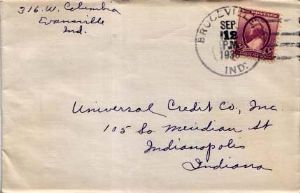 316. W. Columbia
Evansville
Ind.
BRUCEVILLE
SEP
12
P.M.
IND.
Universal Credit Co, Inc.
105 So Meridian St
Indianapolis
Indiana